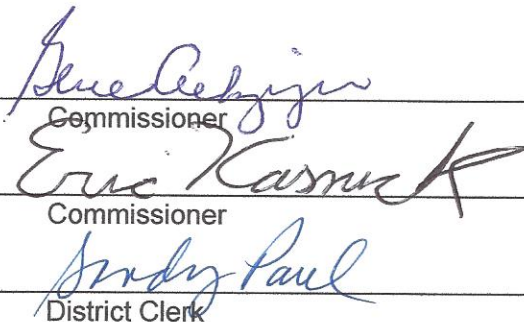 Gene
Commissioner
Eric Kasnick
Commissioner
Sandy Paul
District Clerk